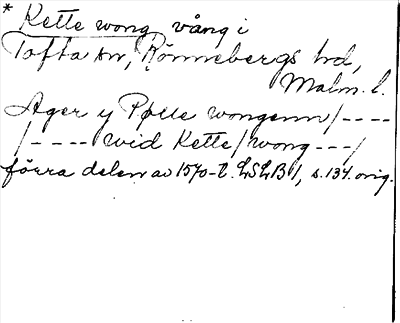 * Kette wong vång i
Tofta sn, Rönnebergs hd,
Malm. l.
Ager y Pølle wongenn/----
/---- wid Kette/wong---/
förra delen av 1570-t. LSLB 1, s. 134. orig.